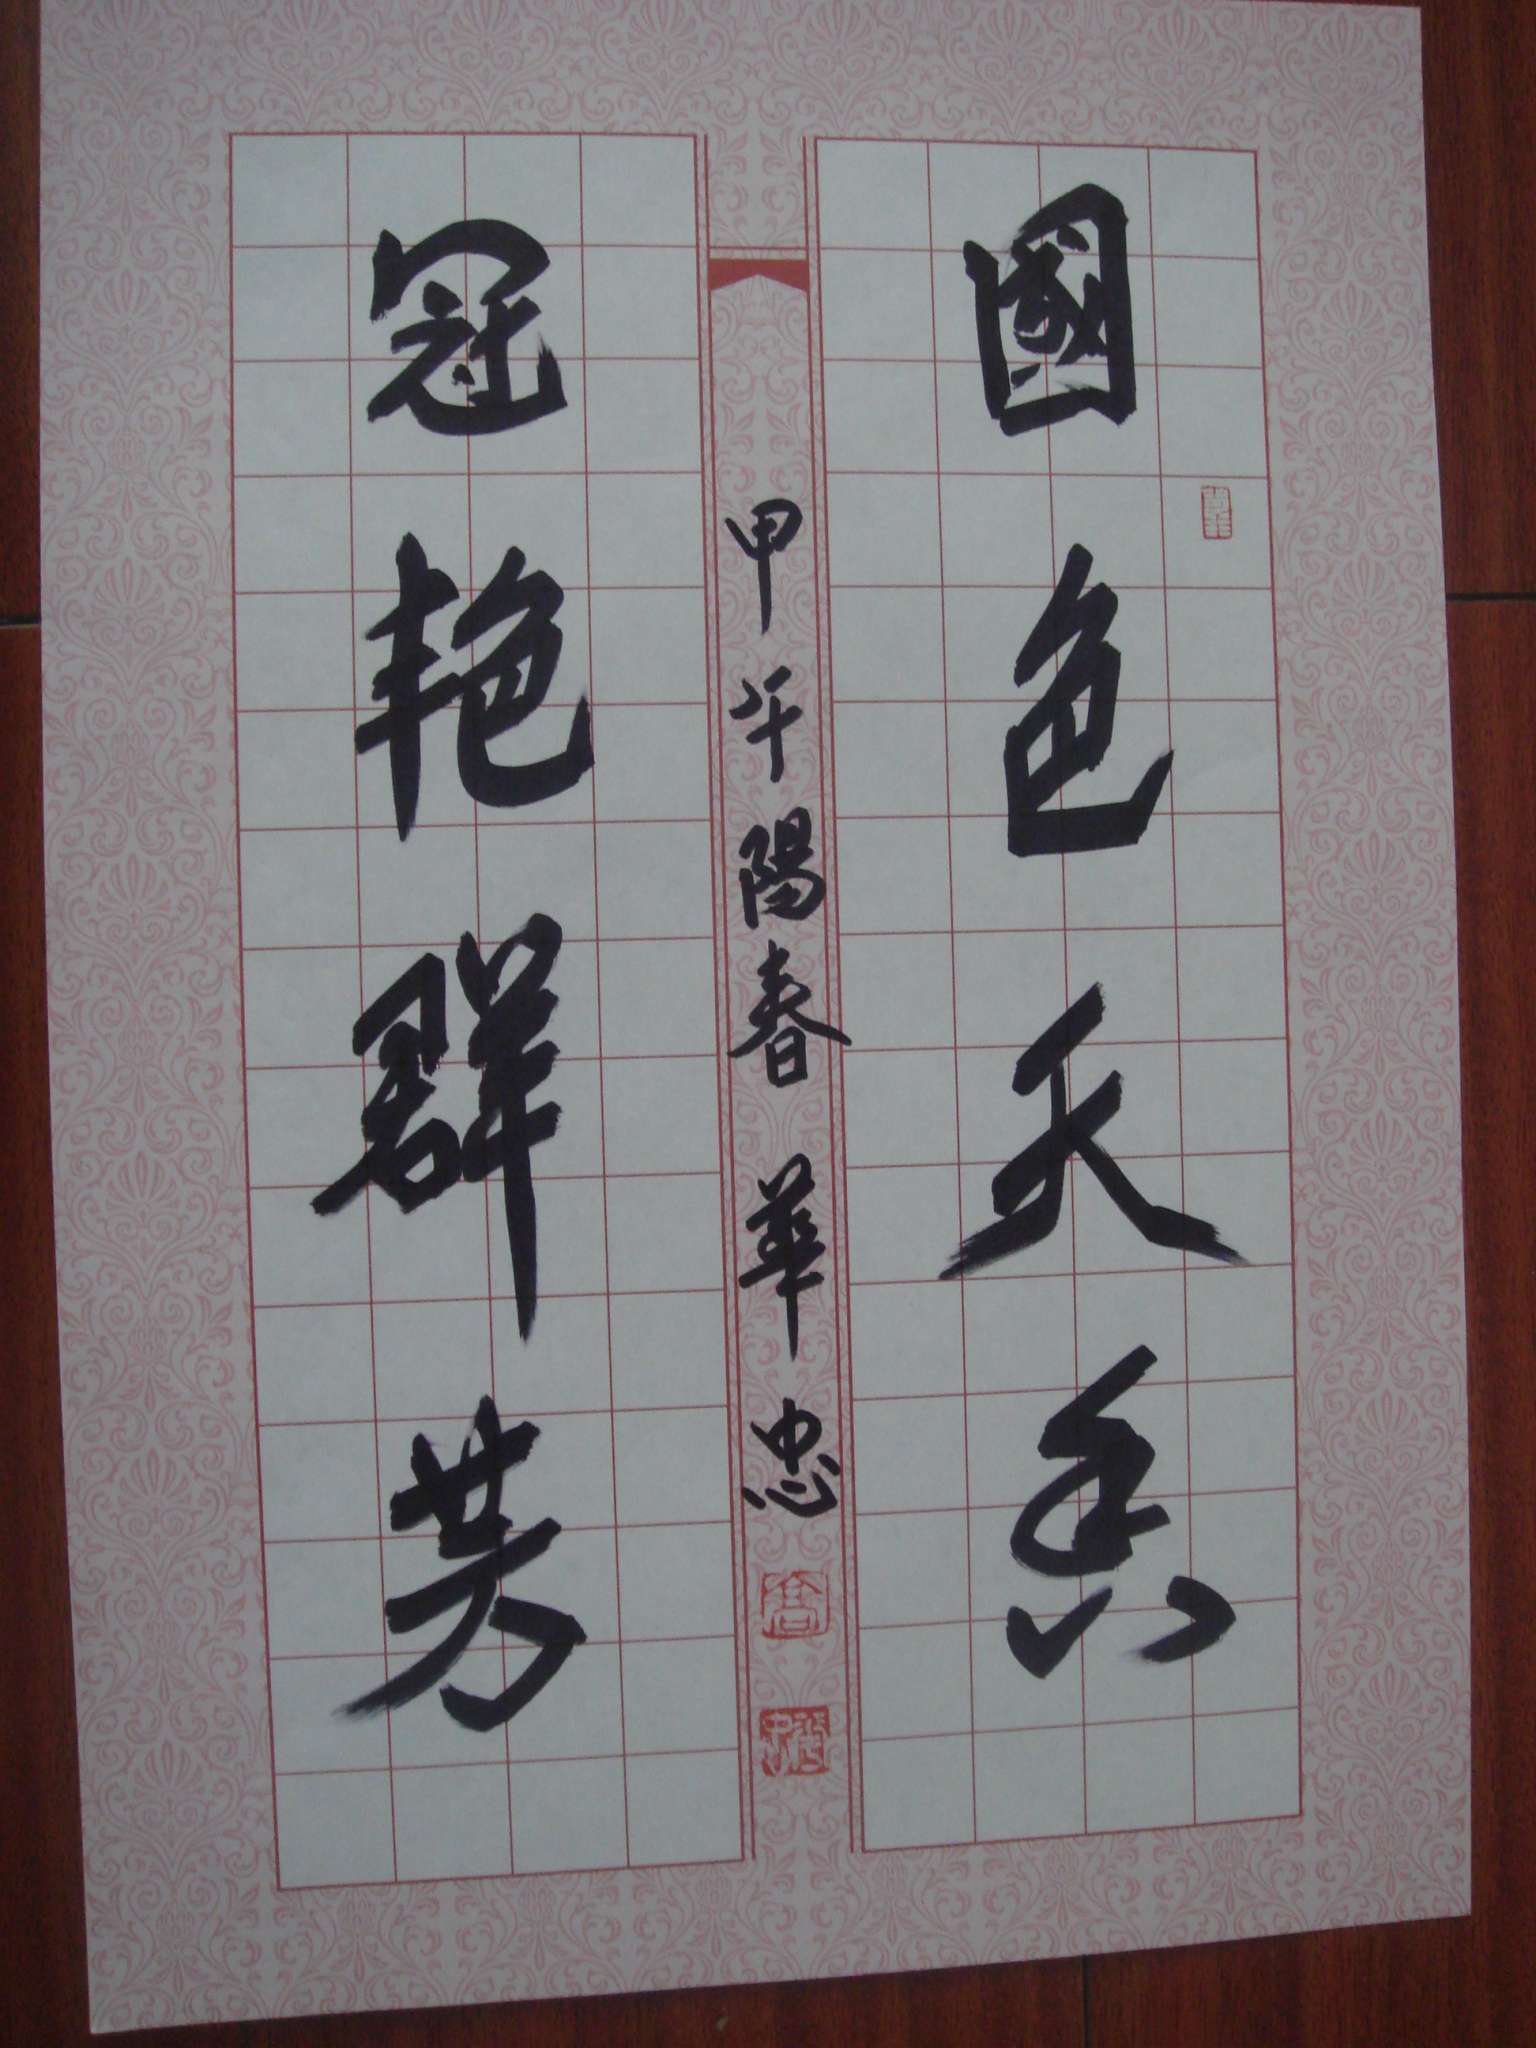 國色天香
甲午陽春華忠
冠艳群芳